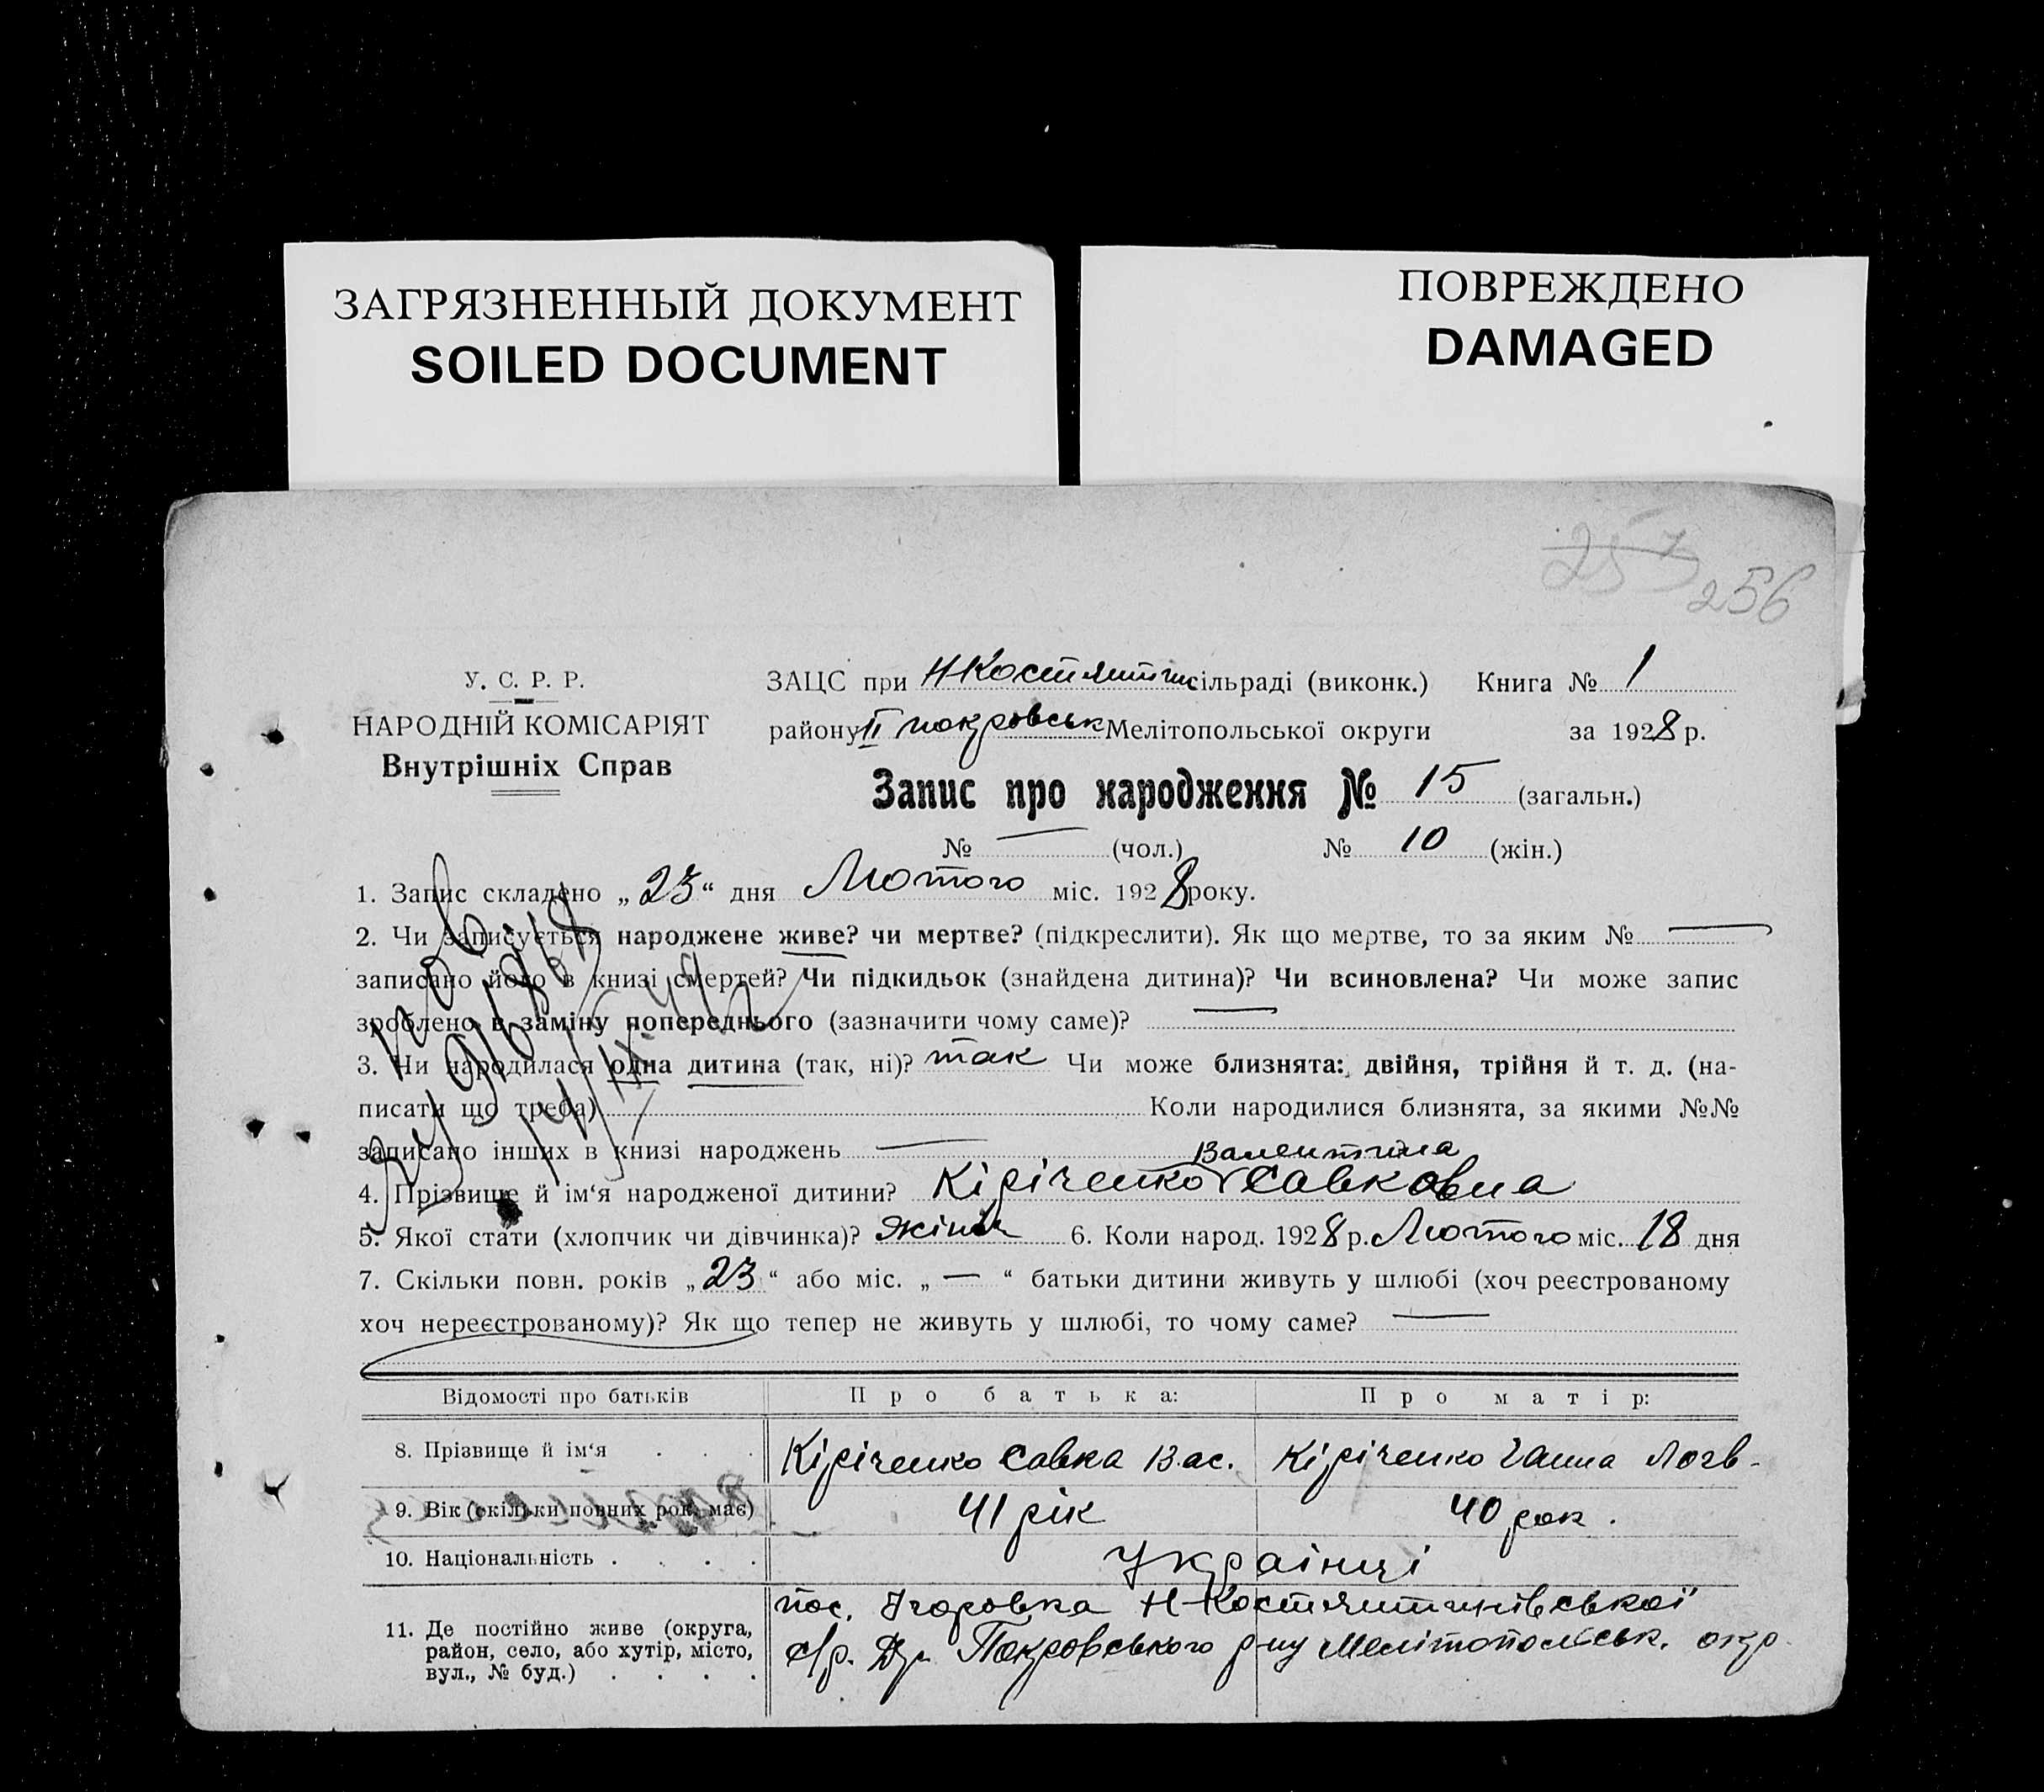 ЗАГРЯЗНЕННЫЙ ДОКУМЕНТ
SOILED DOCUMENT
ПОВРЕЖДЕНО
DAMAGED
257
256
У. С. Р. Р.
НАРОДНІЙ КОМІСАРІЯТ
Внутрішніх Справ
ЗАЦС при Н-Костянтин сільраді (виконк.) Книга № 1
району ІІ покровськ Мелітопольської округи за 1928 р.
Запис про народження № 15 (загальн.)
№ — (чол.) № 10 (жін.)
1. Запис складено „23“ дня Лютого міс. 1928 року.
2. Чи записується народжене живе? чи мертве? (підкреслити). Як що мертве, то за яким № —
записано його в книзі смертей? Чи підкидьок (знайдена дитина)? Чи всиновлена? Чи може запис
зроблено в заміну попереднього (зазначити чому саме)? —
3. Чи народилася одна дитина (так, ні)? так Чи може близнята: двійня, трійня й т. д. (на-
писати що треба) Коли народилися близнята, за якими №№
записано інших в книзі народжень —
Валентина
4. Прізвище й ім‘я народженої дитини? Кіріченко Савковна
5. Якої стати (хлопчик чи дівчинка)? жіноч 6. Коли народ. 1928 р. Лютого міс. 18 дня
7. Скільки повн. років „23“ або міс. „—“ батьки дитини живуть у шлюбі (хоч реєстрованому
хоч нереєстрованому)? Як що тепер не живуть у шлюбі, то чому саме? —
Відомості про батьків Про батька: Про матір:
8. Прізвище й ім‘я . . . Кіріченко Савка Вас. Кіріченко Ганна Логв-
9. Вік (скільки повних рок. має) 41 рік 40 рок.
10. Національність . . . . Українці
11. Де постійно живе (округа, район, село, або хутір, місто, вул., № буд.) . . . .
пос. Ігоровка Н-Костянтинівської
с/р. Др. Покровського р-ну Мелітопольськ. окр.